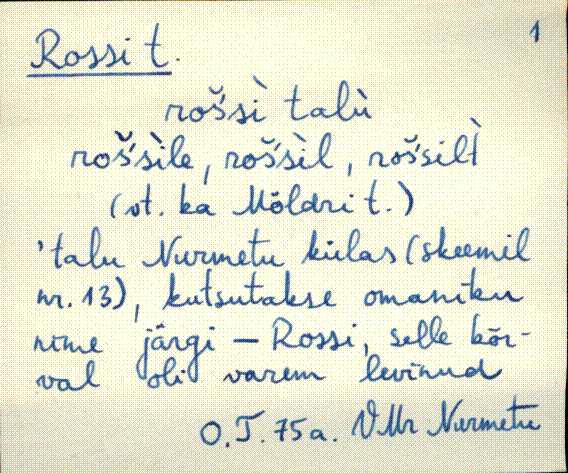 1
Rossi t.
rošsì talù
roš'sìle, roš'sìl, roš'silt̀
(vt. ka Möldri t.)
'talu Nurmetu külas (skeemil
nr. 13), kutsutakse omaniku
nime järgi – Rossi, selle kõr-
val oli varem levinud
O.T. 75a. VMr Nurmetu